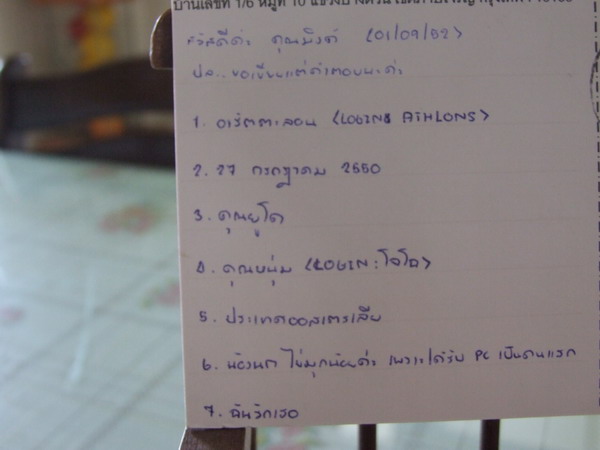 บ้านเลขที่ 1/6 หมู่ที่ 10
สวัสดีค่ะ คุณมิงค์ (01/09/52)
ปล.. ขอเขียนแต่คำตอบนะค่ะ
1. อเร็ตตะลอน (LOGIN: AtHLONS)
2. 27 กรกฎาคม 2550
3. คุณยูโด
4. คุณหนุ่ม (LOGIN: โจโฉ)
5. ประเทศออสเตรเลีย
6. ไข่มุกน้อยค่ะ เพราะได้รับ PC เป็นคนแรก
7. ฉันรักเธอ